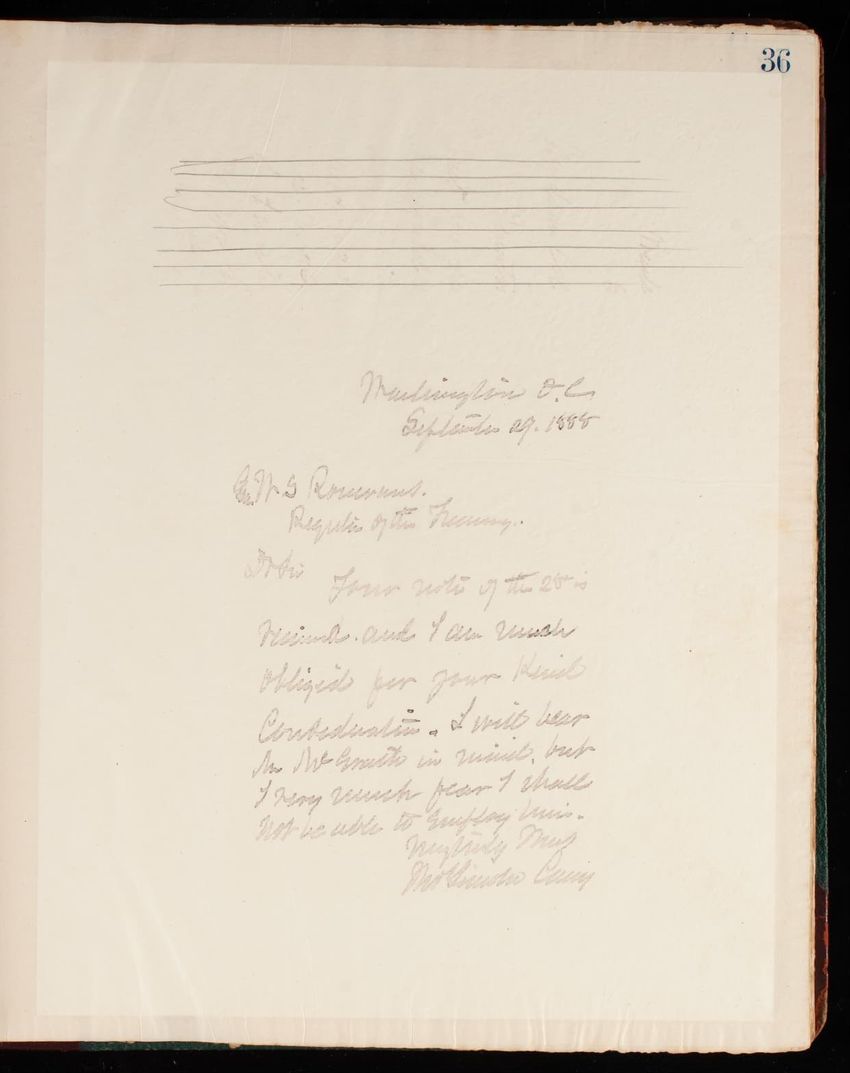 36
Washington D.C.
September 29. 1888
Gen. W S Rosecrans.
Register of the Treasury.
Dr Sir
Your note of the 28 is
received. and I am much
obliged for your Kind
Consideration. I will bear
Mr McGrath in mind, but
I very much fear I shall
not be able to employ him.
Very truly Yours
Thos Lincoln Casey